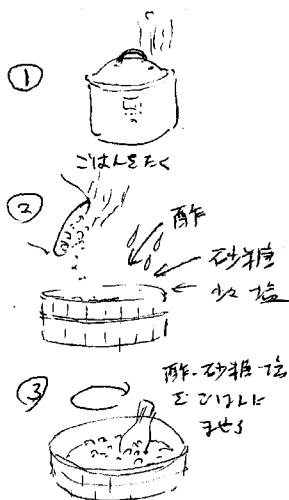 ①
ごはんをたく
②
酢
砂糖
少々塩
③
酢・砂糖・塩
をごはんに
まぜる